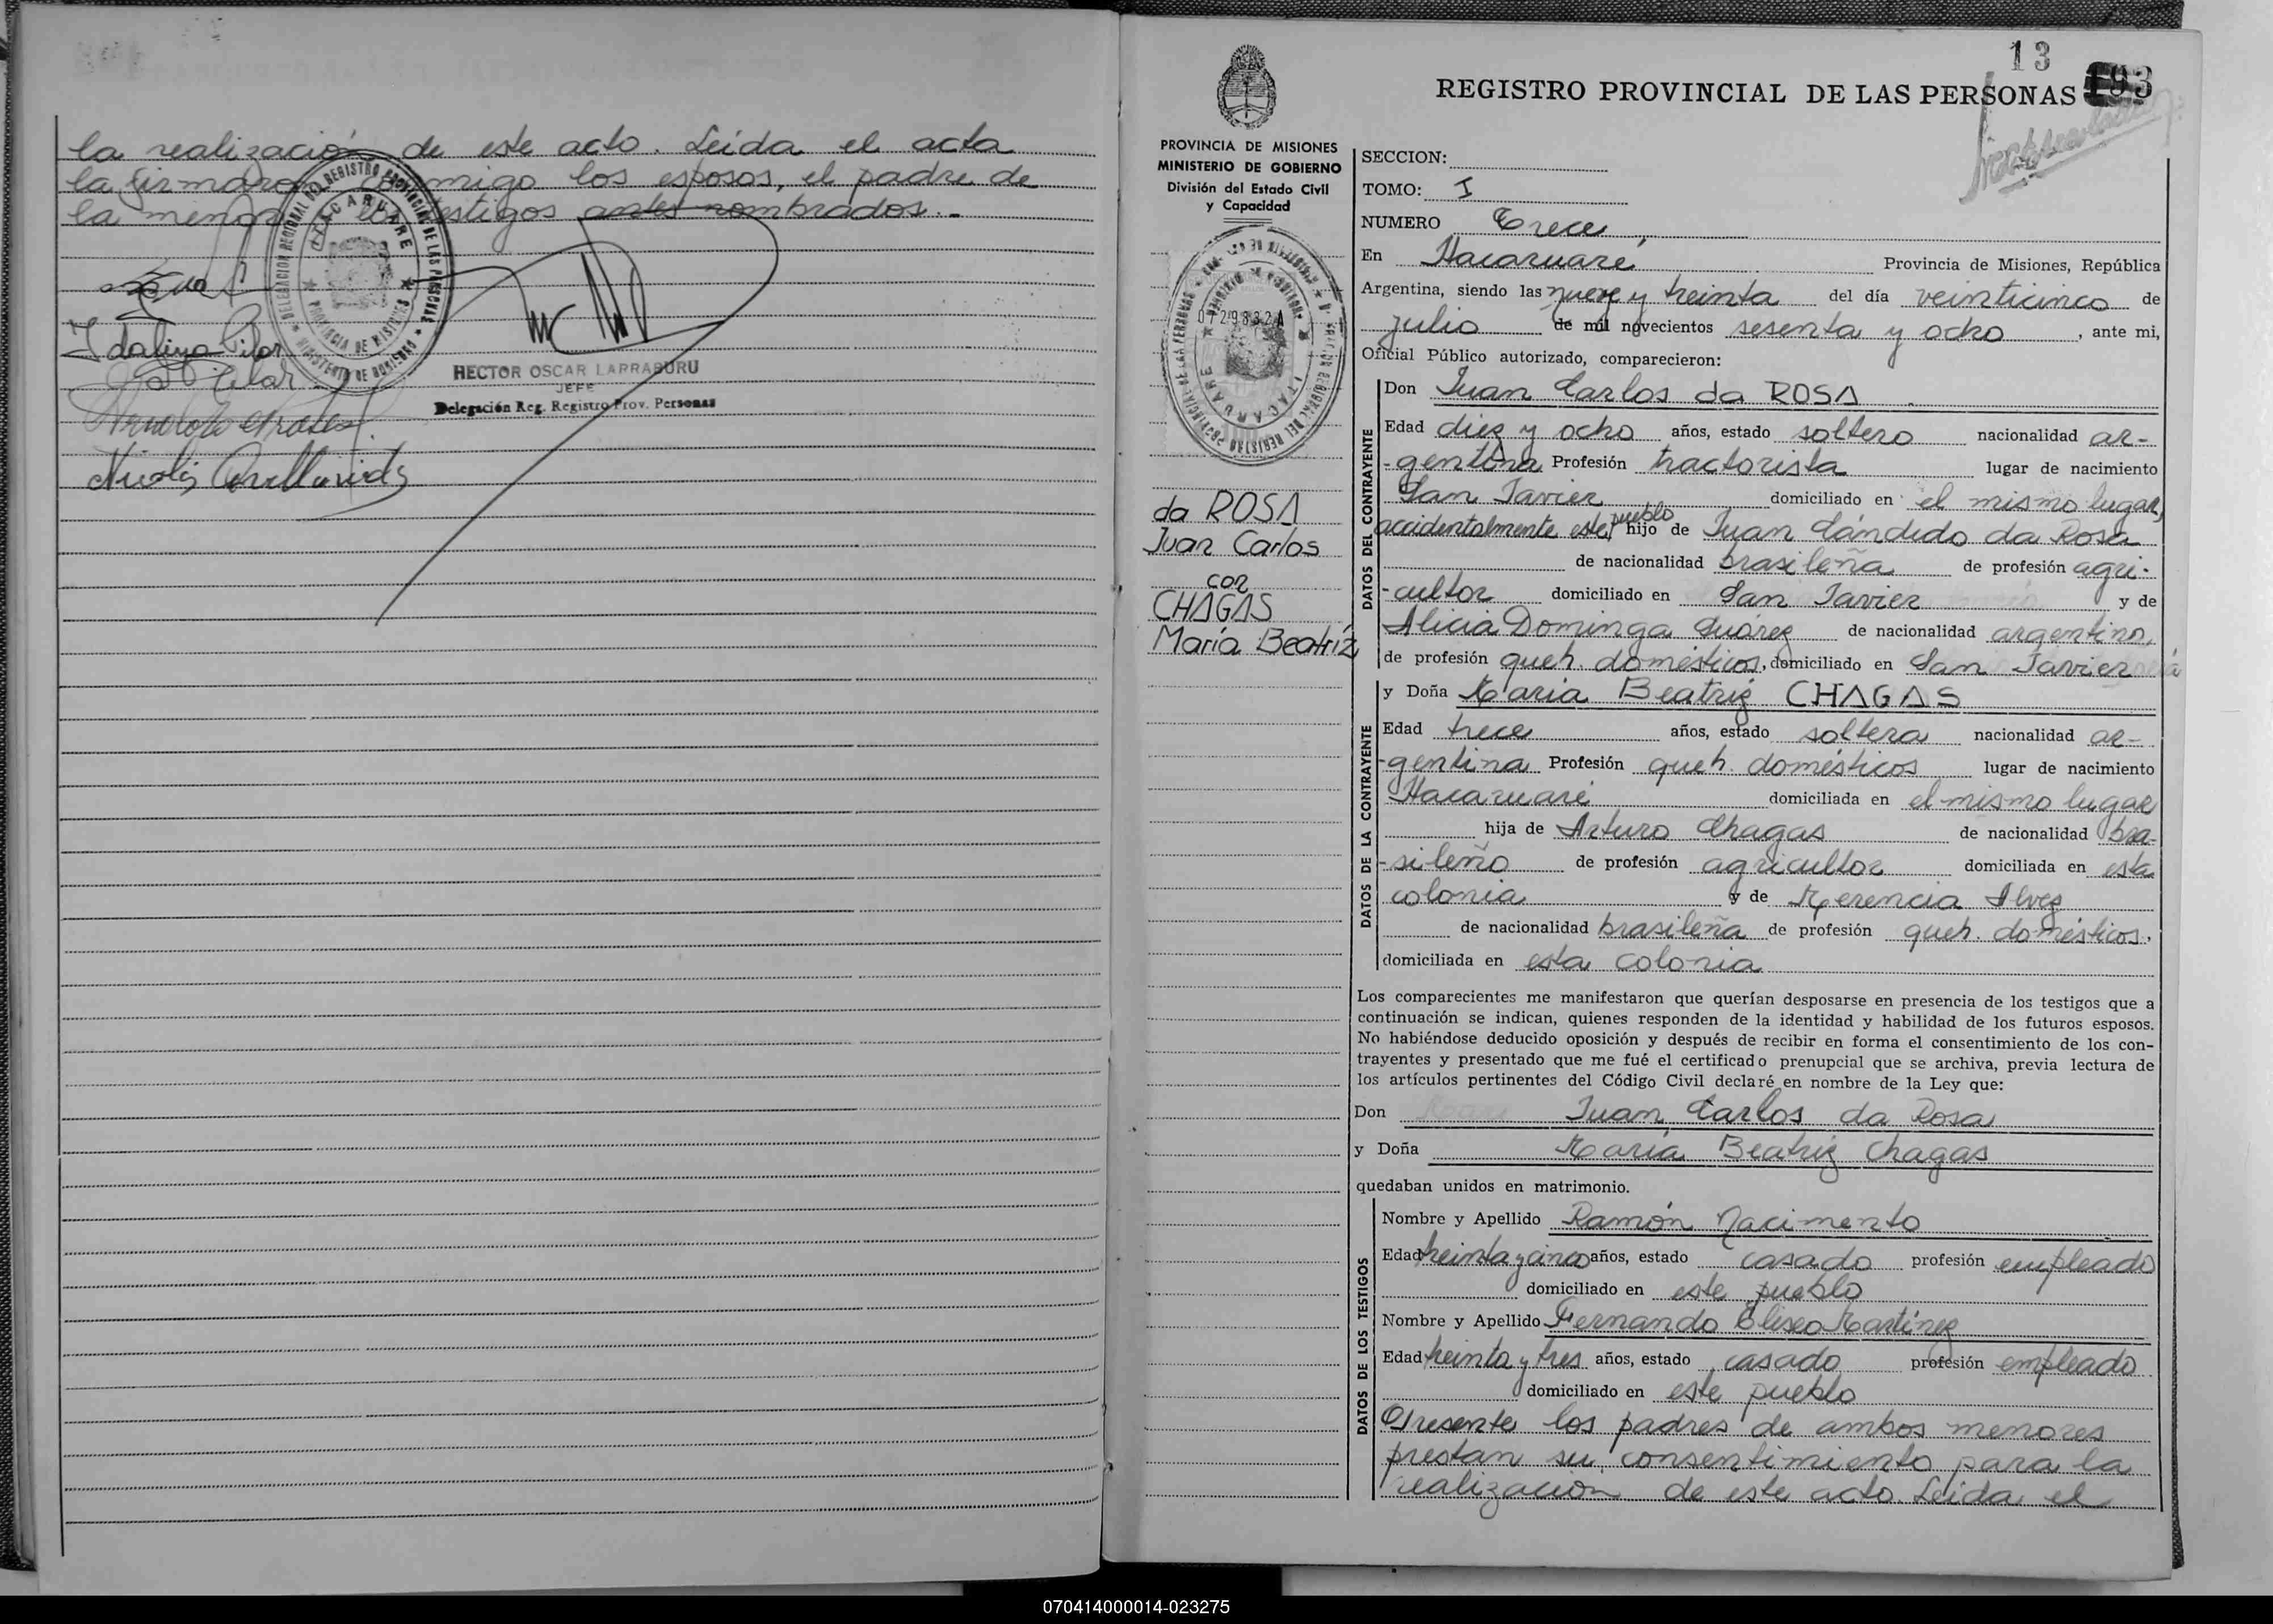 la realización de este acto. Leída el acta
la firmaron conmigo los esposos, el padre de
la menor los testigos antes nombrados.-
DELEGACION REGIONAL DEL REGISTRO PROVINCIAL DE LAS PERSONAS
ITACARUARE
PROVINCIA DE MISIONES
MINISTERIO DE GOBIERNO
Idalina Pilar
HECTOR OSCAR LARRABURU
JEFE
Delegación Reg. Registro Prov. Personas
Nicolás
13
193
REGISTRO PROVINCIAL DE LAS PERSONAS
PROVINCIA DE MISIONES
MINISTERIO DE GOBIERNO
División del Estado Civil
y Capacidad
0729832A
ITACARUARE
da ROSA
Juan Carlos
con
CHAGAS
María Beatríz
SECCION:
TOMO: I
NUMERO Trece
En Itacaruaré, Provincia de Misiones, República
Argentina, siendo las nueve y treinta del día veinticinco de
julio de mil novecientos sesenta y ocho, ante mi,
Oficial Público autorizado, comparecieron:
DATOS DEL CONTRAYENTE
Don Juan Carlos da ROSA
Edad diez y ocho años, estado soltero nacionalidad ar-
-gentina Profesión tractorista lugar de nacimiento
San Javier domiciliado en el mismo lugar,
accidentalmente este pueblo hijo de Juan Cándido da Rosa
de nacionalidad brasileña de profesión agri-
-cultor domiciliado en San Javier y de
Alicia Dominga Suárez de nacionalidad argentina,
de profesión queh. domésticos, domiciliado en San Javier
DATOS DE LA CONTRAYENTE
y Doña María Beatriz CHAGAS
Edad trece años, estado soltera nacionalidad ar-
-gentina Profesión queh. domésticos lugar de nacimiento
Itacaruaré domiciliada en el mismo lugar
hija de Arturo Chagas de nacionalidad bra-
-sileño de profesión agricultor domiciliada en esta
colonia y de Merencia Alvez
de nacionalidad brasileña de profesión queh. domésticos,
domiciliada en esta colonia
Los comparecientes me manifestaron que querían desposarse en presencia de los testigos que a
continuación se indican, quienes responden de la identidad y habilidad de los futuros esposos.
No habiéndose deducido oposición y después de recibir en forma el consentimiento de los con-
trayentes y presentado que me fué el certificado prenupcial que se archiva, previa lectura de
los artículos pertinentes del Código Civil declaré en nombre de la Ley que:
Don Juan Carlos da Rosa
y Doña María Beatriz Chagas
quedaban unidos en matrimonio.
DATOS DE LOS TESTIGOS
Nombre y Apellido Ramón Nacimento
Edad treinta y cinco años, estado casado profesión empleado
domiciliado en este pueblo
Nombre y Apellido Fernando Eliseo Martínez
Edad treinta y tres años, estado casado profesión empleado
domiciliado en este pueblo
Presente los padres de ambos menores
prestan su consentimiento para la
realización de este acto. Leída el
070414000014-023275